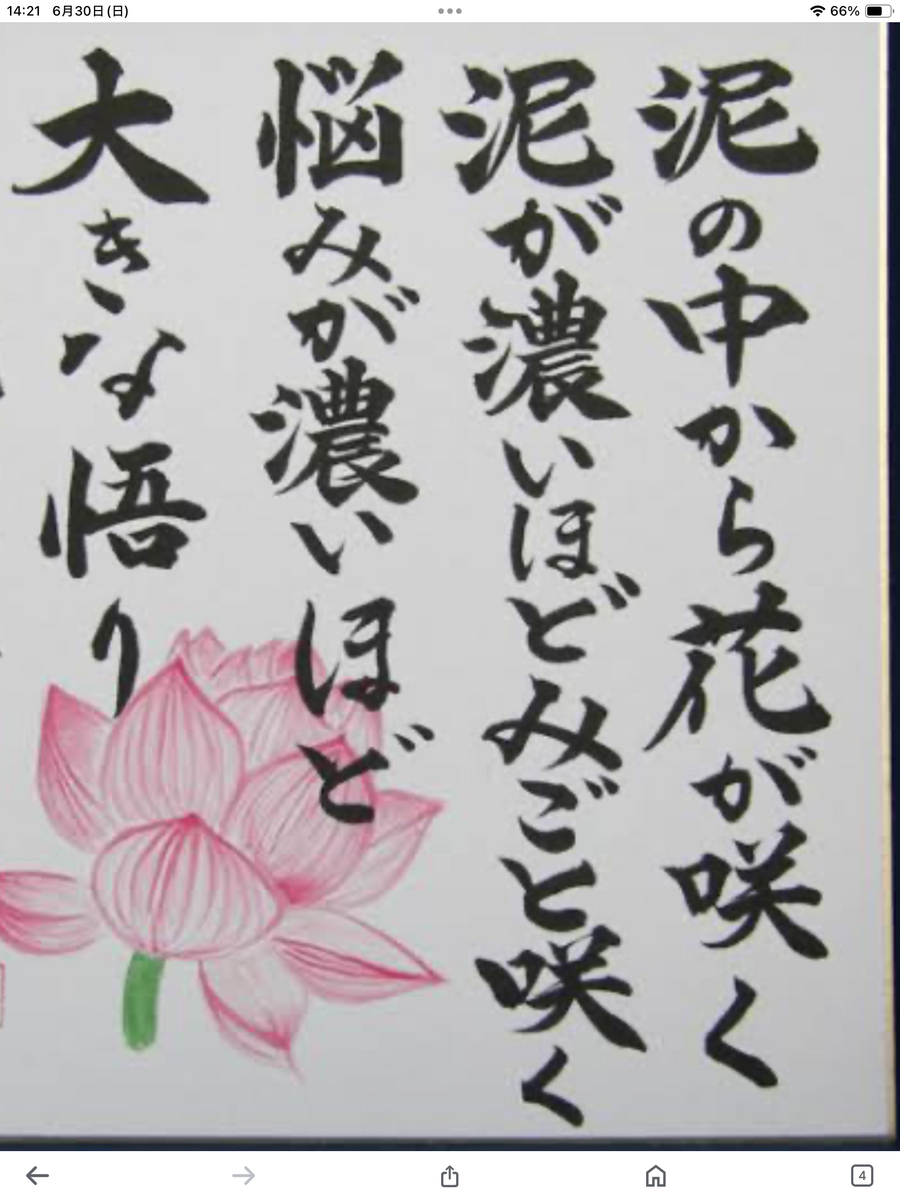 14:21 6月30日(日)
66%
泥の中から花が咲く
泥が濃いほどみごと咲く
悩みが濃いほど
大きな悟り
4